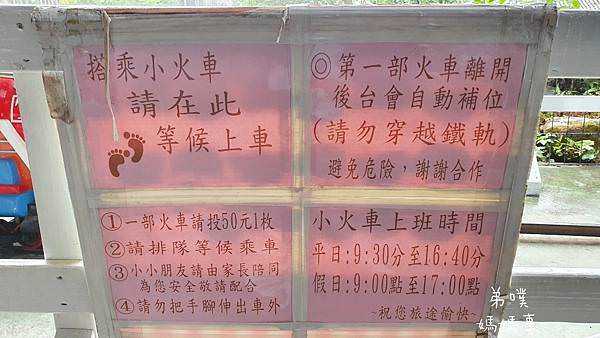 搭乘小火車
請在此
等候上車
◎第一部火車離開
後台會自動補位
(請勿穿越鐵軌)
避免危險，謝謝合作
①一部火車請投50元1枚
②請排隊等候乘車
③小小朋友請由家長陪同
為您安全敬請配合
④請勿把手腳伸出車外
小火車上班時間
平日:9:30分至16:40分
假日:9:00點至17:00點
~祝您旅途愉快~
弟噗
媽媽囈